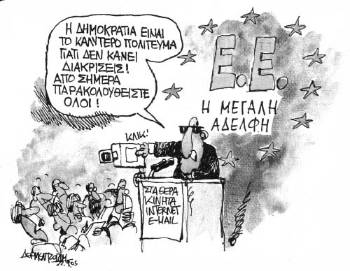 Η ΔΗΜΟΚΡΑΤΙΑ ΕΙΝΑΙ
ΤΟ ΚΑΛΥΤΕΡΟ ΠΟΛΙΤΕΥΜΑ
ΓΙΑΤΙ ΔΕΝ ΚΑΝΕΙ
ΔΙΑΚΡΙΣΕΙΣ!
ΑΠΟ ΣΗΜΕΡΑ
ΠΑΡΑΚΟΛΟΥΘΕΙΣΤΕ
ΟΛΟΙ!
Ε.Ε.
Η ΜΕΓΑΛΗ
ΑΔΕΛΦΗ
ΚΛΙΚ!
ΣΤΑΘΕΡΑ
ΚΙΝΗΤΑ
INTERNET
E-MAIL